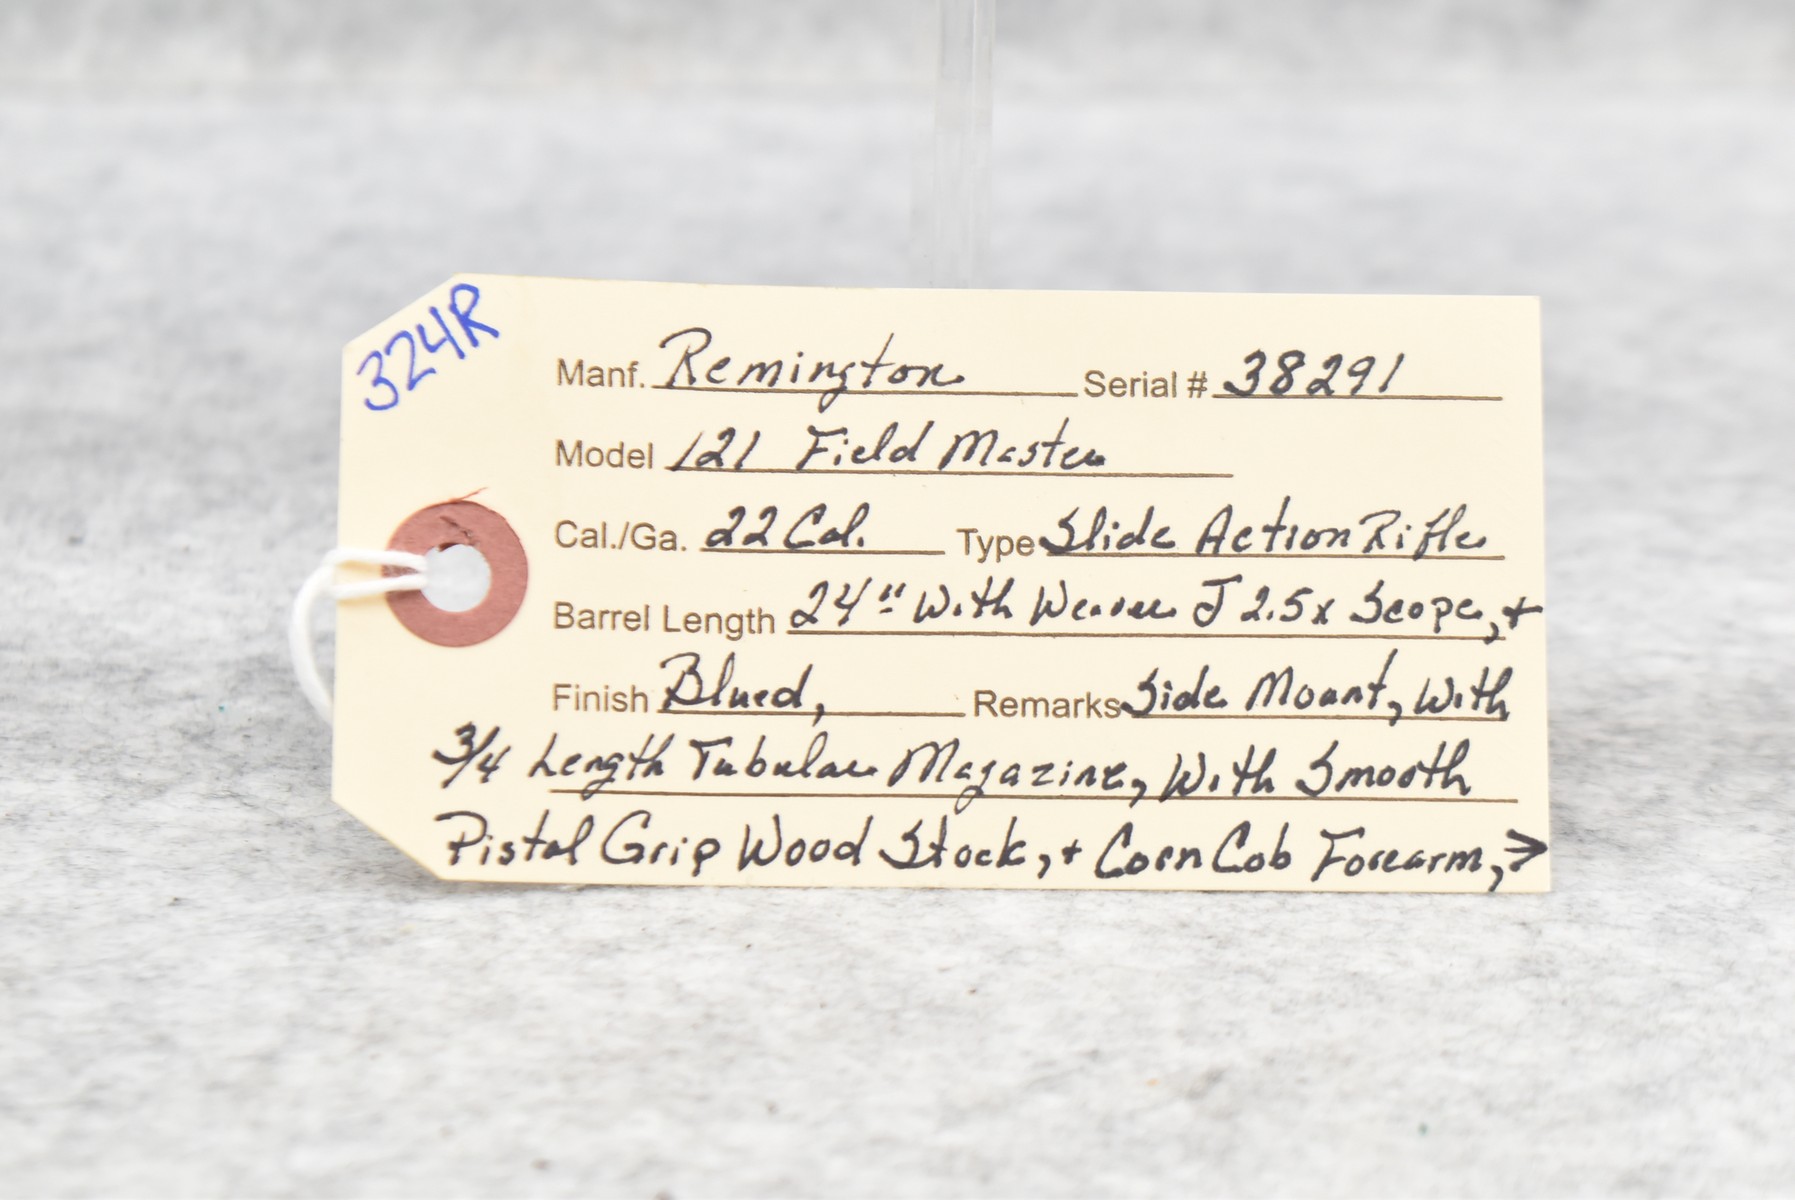 324R
Manf. Remington Serial # 38291
Model 121 Field Master
Cal./Ga. 22 Cal. Type Slide Action Rifle
Barrel Length 24" With Weaver J 2.5x Scope, +
Finish Blued, Remarks Side Mount, With
3/4 Length Tubular Magazine, With Smooth
Pistol Grip Wood Stock, + Corn Cob Forearm, →